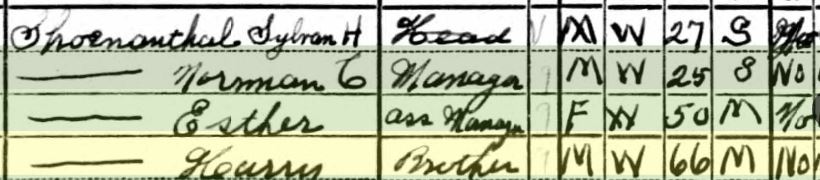 Shoenanthal Sylvan H Head M W 27 S No
— Norman C Manager M W 25 S No
— Esther ass Manager F W 50 M No
— Harry Brother M W 66 M No